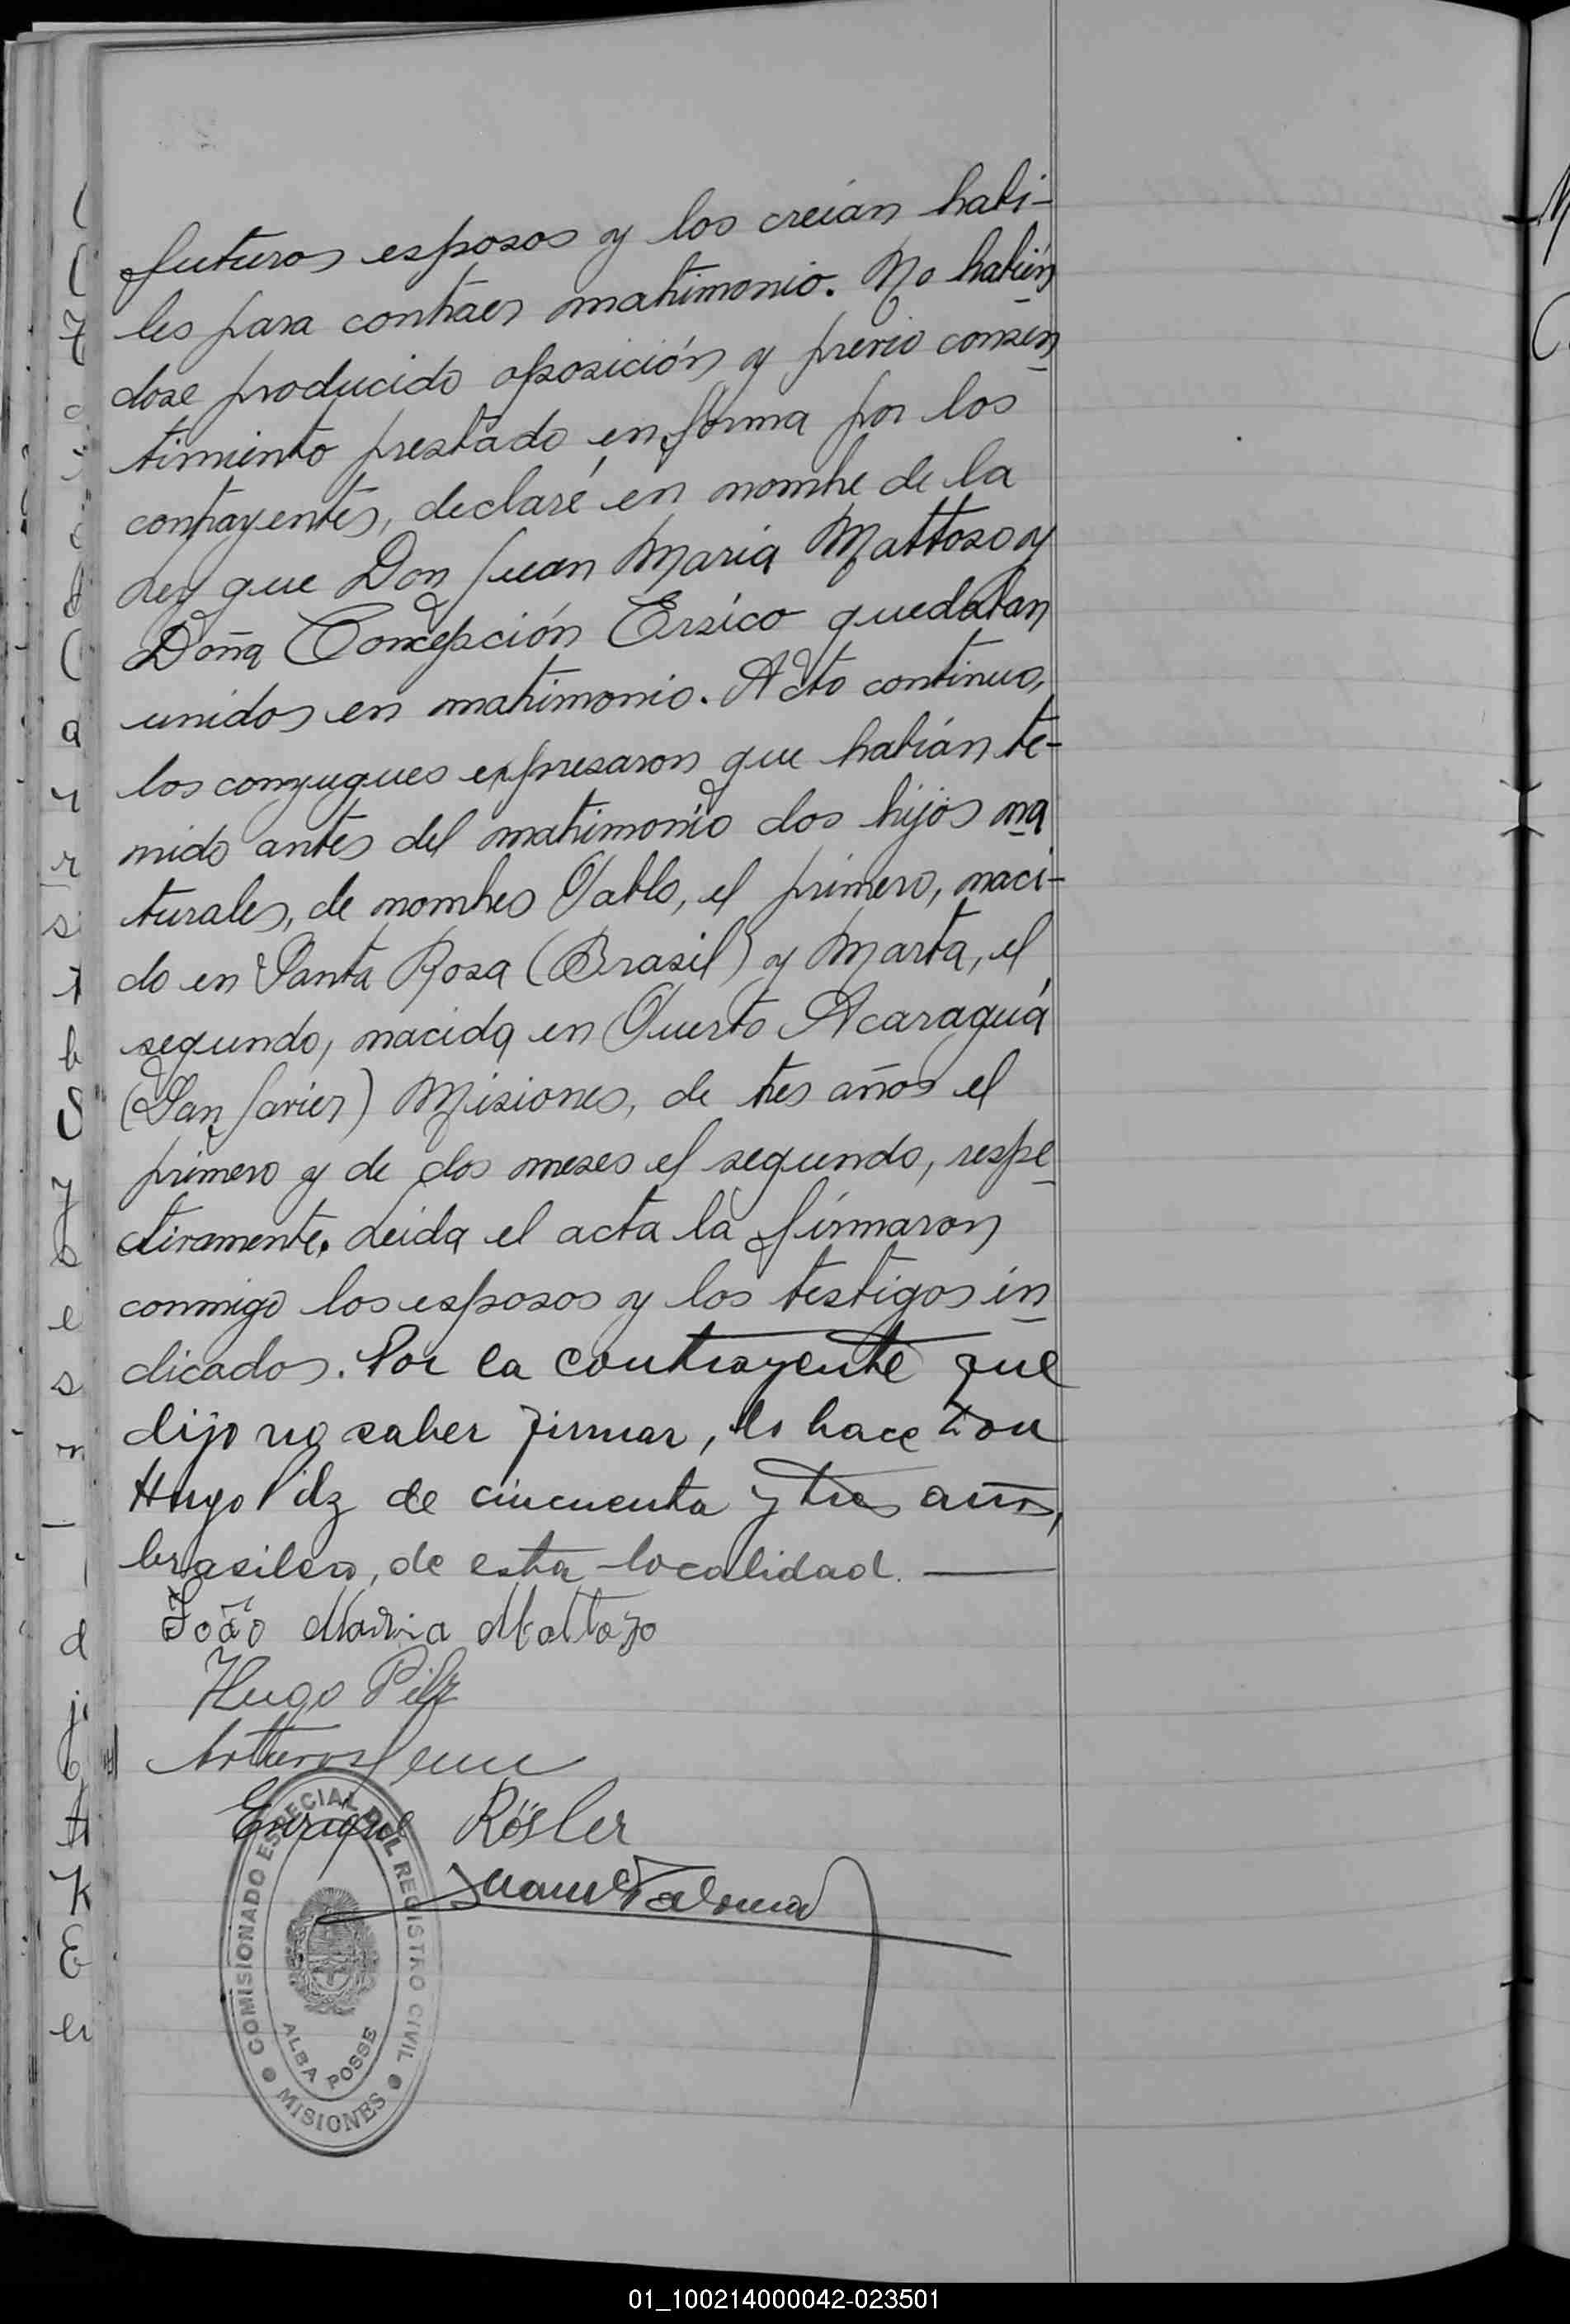 futuros esposos y los creían hábi-
les para contraer matrimonio. No habién
dose producido oposición y previo consen
timiento prestado en forma por los
contrayentes, declaré en nombre de la
Ley que Don Juan Maria Mattoso y
Doña Concepción Ersico quedaban
unidos en matrimonio. Acto continuo,
los conyugues expresaron que habían te-
nido antes del matrimonio dos hijos na
turales, de nombres Pablo, el primero, naci-
do en Santa Rosa (Brasil) y Marta, el
segundo, nacida en Puerto Acaraguá
(San Javier) Misiones, de tres años el
primero y de dos meses el segundo, respe
ctivamente. Leida el acta la firmaron
conmigo los esposos y los testigos in
dicados. Por la contrayente que
dijo no saber firmar, lo hace Don
Hugo Pilz de cincuenta y tres años,
brasilero, de esta localidad.
João Maria Mattozo
Hugo Pilz
Arturo
Enrique Rösler
Juan
COMISIONADO ESPECIAL DEL REGISTRO CIVIL
ALBA POSSE
MISIONES
01_100214000042-023501